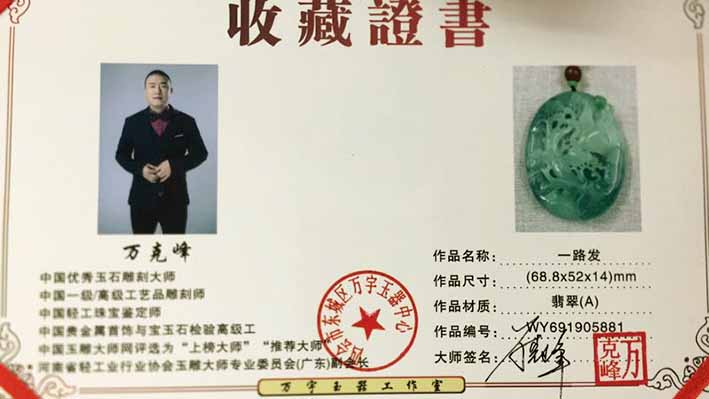 收藏證書
万克峰
中国优秀玉石雕刻大师
中国一级/高级工艺品雕刻师
中国轻工珠宝鉴定师
中国贵金属首饰与宝玉石检验高级工
中国玉雕大师网评选为“上榜大师” “推荐大师”
河南省轻工业行业协会玉雕大师专业委员会(广东)副会长
四会市东城区万宇玉器中心
作品名称： 一路发
作品尺寸： (68.8x52x14)mm
作品材质： 翡翠(A)
作品编号： WY691905881
大师签名：
万克峰
万宇玉器工作室